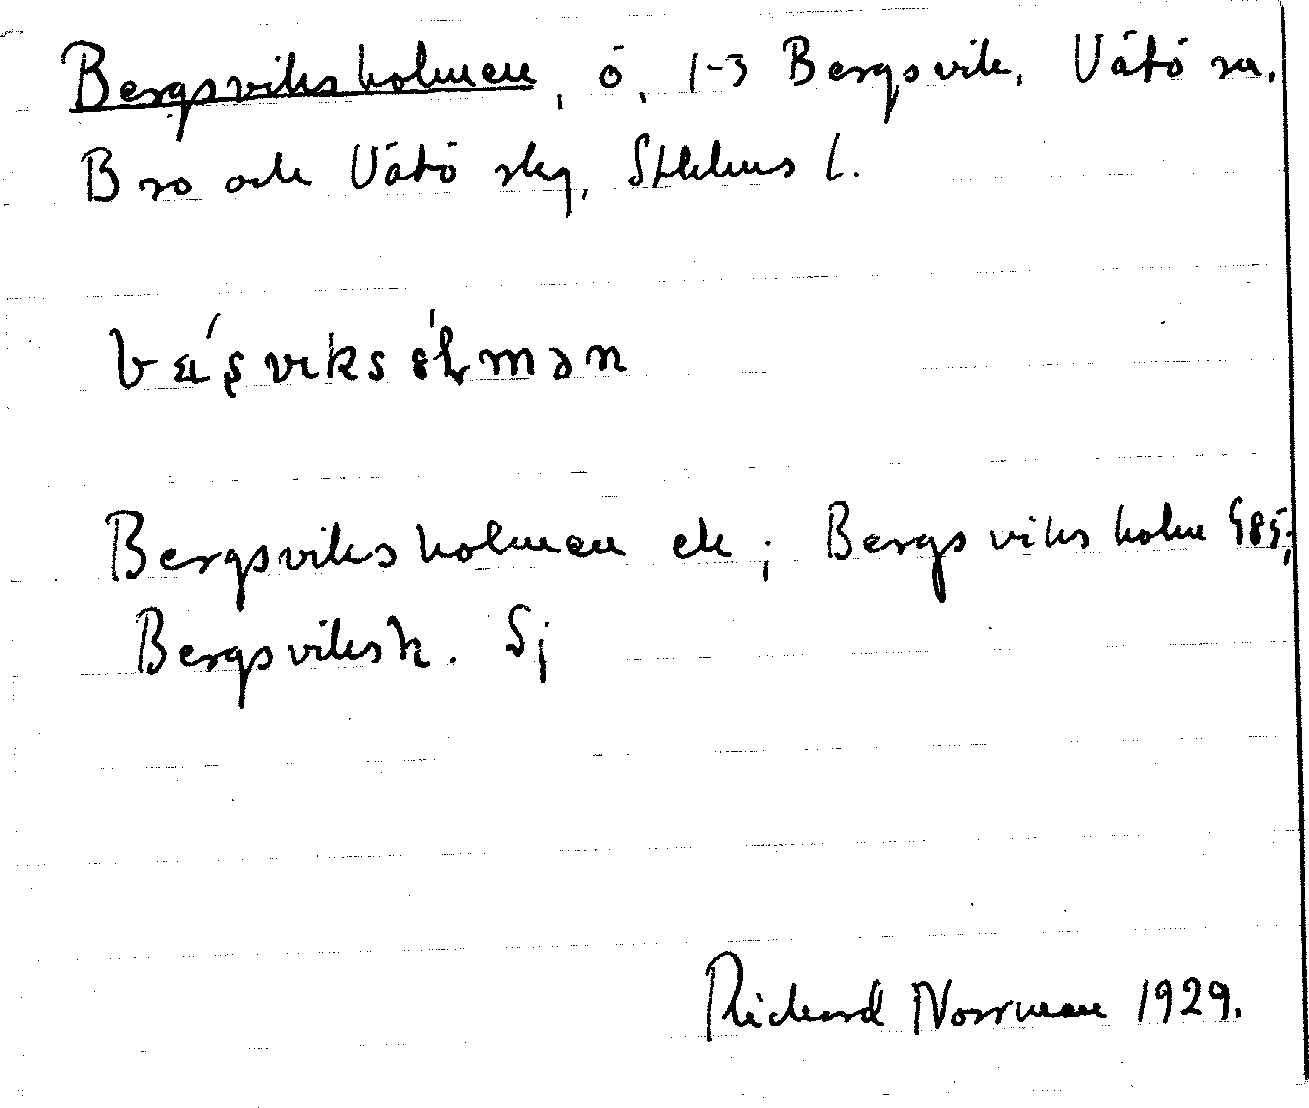 Bergsviksholmen, ö, 1-3 Bergsvik, Vätö sn.
Bro och Vätö skg, Sthlms l.
Bergsviksholmen ek; Bergsviksholm 985;
Bergsviksh. Sj
Richard Norrman 1929.